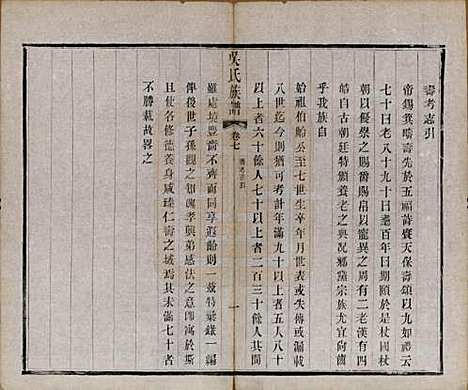 壽考志引
帝錫箕疇壽先於五福詩賡天保壽頌以九如禮云
七十曰老八十九十曰耄百年曰期於是杖國杖
朝以優學之賜爵賜帛以寵異之周有二老漢有四
皓自古朝廷特頒養老之典况鄉黨宗族尤宜尚齒
乎我族自
始祖伯船公至七世生卒年月世表或失傳或漏載
八世迄今則猶可考計年滿九十以上者五人八十
以上者六十餘人七十以上者二百三十餘人其間
雖處境豐嗇不同而同享遐齡則一茲特彙錄一編
俾後世孝子順孫得以覽觀而孝與弟感之意即寓於斯
世使各修德養身咸臻仁壽之域焉其未滿七十者
不勝載故畧之
吳氏族譜
卷七
壽考志引
一